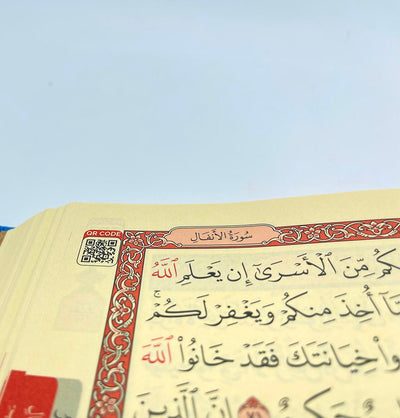 QR CODE
سُورَةُ الأَنفَالِ
كُم مِّنَ ٱلْأَسْرَىٰٓ إِن يَعْلَمِ ٱللَّهُ
أُخِذَ مِنكُمْ وَيَغْفِرْ لَكُمْۚ
خِيَانَتَكَ فَقَدْ خَانُوا۟ ٱللَّهَ
إِنَّ ٱلَّذِينَ